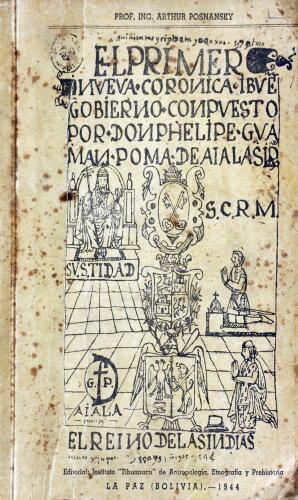 PROF. ING. ARTHUR POSNANSKY
EL PRIMER
NVEVA·CORONICA·IBVE
GOBIERNO·CONPVESTO
POR·DONPHELIPE·GVA
MAN·POMA·DEAIALA·
S.C.R.M.
SVSTIDAD
G. P.
AIALA
ELREINODELASINDIAS
Editorial: Instituto "Tihuanacu" de Antropología, Etnografía y Prehistoria
LA PAZ (BOLIVIA).—1944